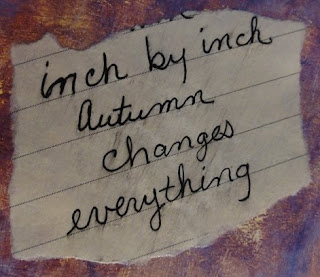 inch by inch
Autumn
changes
everything